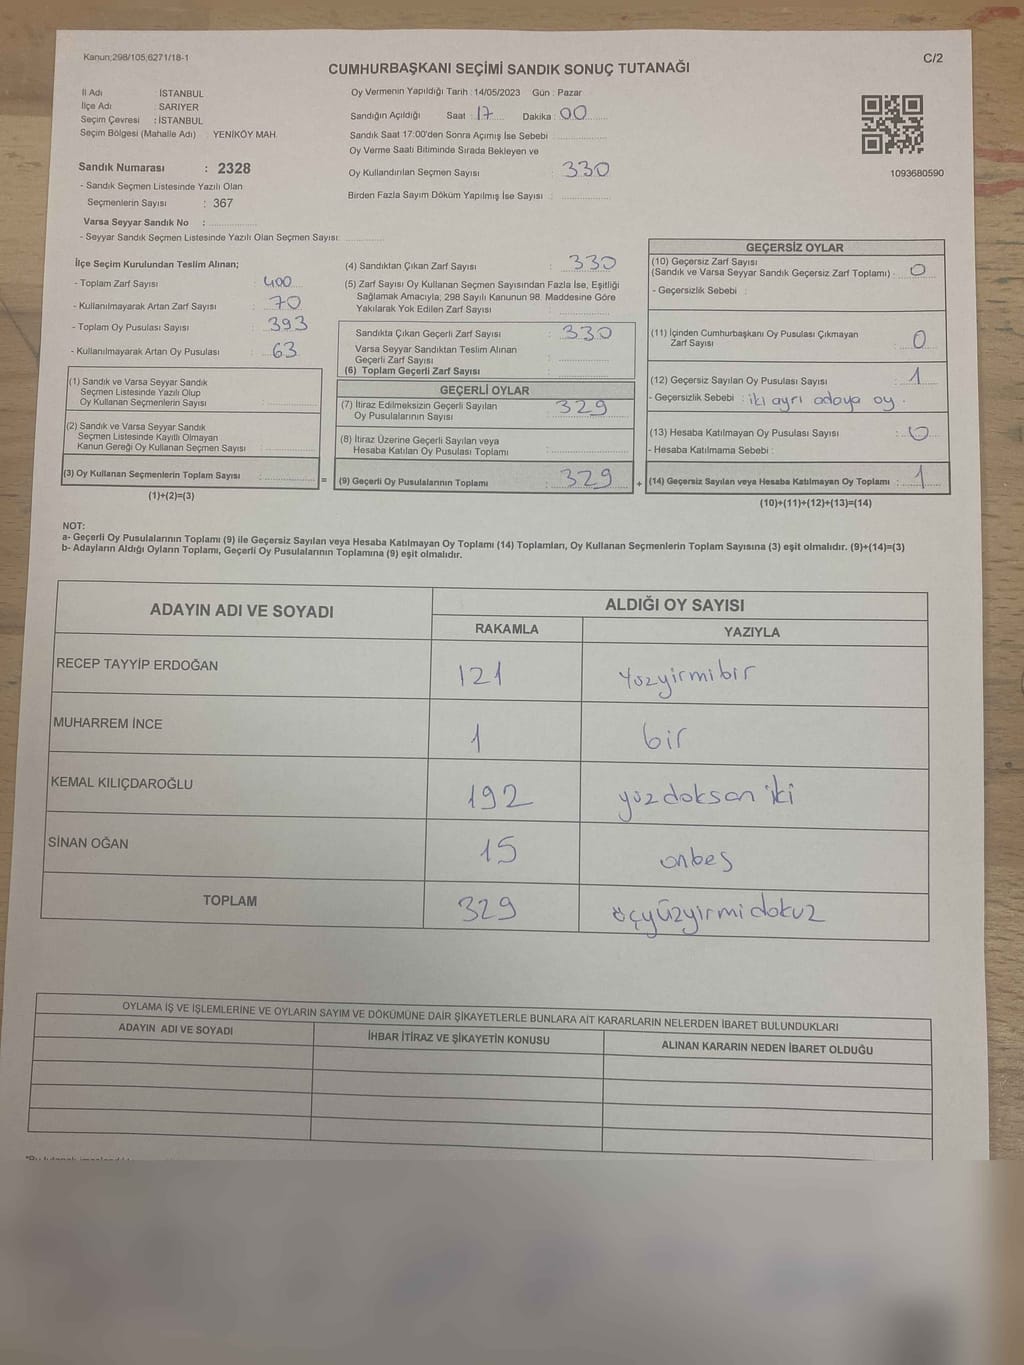 Kanun;298/105;6271/18-1
C/2
CUMHURBAŞKANI SEÇİMİ SANDIK SONUÇ TUTANAĞI
İl Adı : İSTANBUL
İlçe Adı : SARIYER
Seçim Çevresi : İSTANBUL
Seçim Bölgesi (Mahalle Adı) : YENİKÖY MAH.
Sandık Numarası : 2328
- Sandık Seçmen Listesinde Yazılı Olan
Seçmenlerin Sayısı : 367
Varsa Seyyar Sandık No : ..............
- Seyyar Sandık Seçmen Listesinde Yazılı Olan Seçmen Sayısı: ..............
Oy Vermenin Yapıldığı Tarih : 14/05/2023 Gün : Pazar
Sandığın Açıldığı Saat : 17 Dakika : 00
Sandık Saat 17:00'den Sonra Açımış İse Sebebi : ..............
Oy Verme Saati Bitiminde Sırada Bekleyen ve
Oy Kullandırılan Seçmen Sayısı : 330
Birden Fazla Sayım Döküm Yapılmış İse Sayısı : ..............
1093680590
İlçe Seçim Kurulundan Teslim Alınan;
- Toplam Zarf Sayısı : 400
- Kullanılmayarak Artan Zarf Sayısı : 70
- Toplam Oy Pusulası Sayısı : 393
- Kullanılmayarak Artan Oy Pusulası : 63
(1) Sandık ve Varsa Seyyar Sandık
Seçmen Listesinde Yazılı Olup
Oy Kullanan Seçmenlerin Sayısı : ..............
(2) Sandık ve Varsa Seyyar Sandık
Seçmen Listesinde Kayıtlı Olmayan
Kanun Gereği Oy Kullanan Seçmen Sayısı : ..............
(3) Oy Kullanan Seçmenlerin Toplam Sayısı : .............. =
(1)+(2)=(3)
(4) Sandıktan Çıkan Zarf Sayısı : 330
(5) Zarf Sayısı Oy Kullanan Seçmen Sayısından Fazla İse, Eşitliği
Sağlamak Amacıyla; 298 Sayılı Kanunun 98. Maddesine Göre
Yakılarak Yok Edilen Zarf Sayısı : ..............
Sandıkta Çıkan Geçerli Zarf Sayısı : 330
Varsa Seyyar Sandıktan Teslim Alınan
Geçerli Zarf Sayısı : ..............
(6) Toplam Geçerli Zarf Sayısı : ..............
GEÇERLİ OYLAR
(7) İtiraz Edilmeksizin Geçerli Sayılan
Oy Pusulalarının Sayısı : 329
(8) İtiraz Üzerine Geçerli Sayılan veya
Hesaba Katılan Oy Pusulası Toplamı : ..............
(9) Geçerli Oy Pusulalarının Toplamı : 329 +
GEÇERSİZ OYLAR
(10) Geçersiz Zarf Sayısı
(Sandık ve Varsa Seyyar Sandık Geçersiz Zarf Toplamı) : 0
- Geçersizlik Sebebi :
(11) İçinden Cumhurbaşkanı Oy Pusulası Çıkmayan
Zarf Sayısı : 0
(12) Geçersiz Sayılan Oy Pusulası Sayısı : 1
- Geçersizlik Sebebi : iki ayrı adaya oy.
(13) Hesaba Katılmayan Oy Pusulası Sayısı : 0
- Hesaba Katılmama Sebebi :
(14) Geçersiz Sayılan veya Hesaba Katılmayan Oy Toplamı : 1
(10)+(11)+(12)+(13)=(14)
NOT:
a- Geçerli Oy Pusulalarının Toplamı (9) ile Geçersiz Sayılan veya Hesaba Katılmayan Oy Toplamı (14) Toplamları, Oy Kullanan Seçmenlerin Toplam Sayısına (3) eşit olmalıdır. (9)+(14)=(3)
b- Adayların Aldığı Oyların Toplamı, Geçerli Oy Pusulalarının Toplamına (9) eşit olmalıdır.
ADAYIN ADI VE SOYADI ALDIĞI OY SAYISI
RAKAMLA YAZIYLA
RECEP TAYYİP ERDOĞAN 121 Yüzyirmibir
MUHARREM İNCE 1 bir
KEMAL KILIÇDAROĞLU 192 yüzdoksan iki
SİNAN OĞAN 15 onbeş
TOPLAM 329 üçyüzyirmidokuz
OYLAMA İŞ VE İŞLEMLERİNE VE OYLARIN SAYIM VE DÖKÜMÜNE DAİR ŞİKAYETLERLE BUNLARA AİT KARARLARIN NELERDEN İBARET BULUNDUKLARI
ADAYIN ADI VE SOYADI İHBAR İTİRAZ VE ŞİKAYETİN KONUSU ALINAN KARARIN NEDEN İBARET OLDUĞU